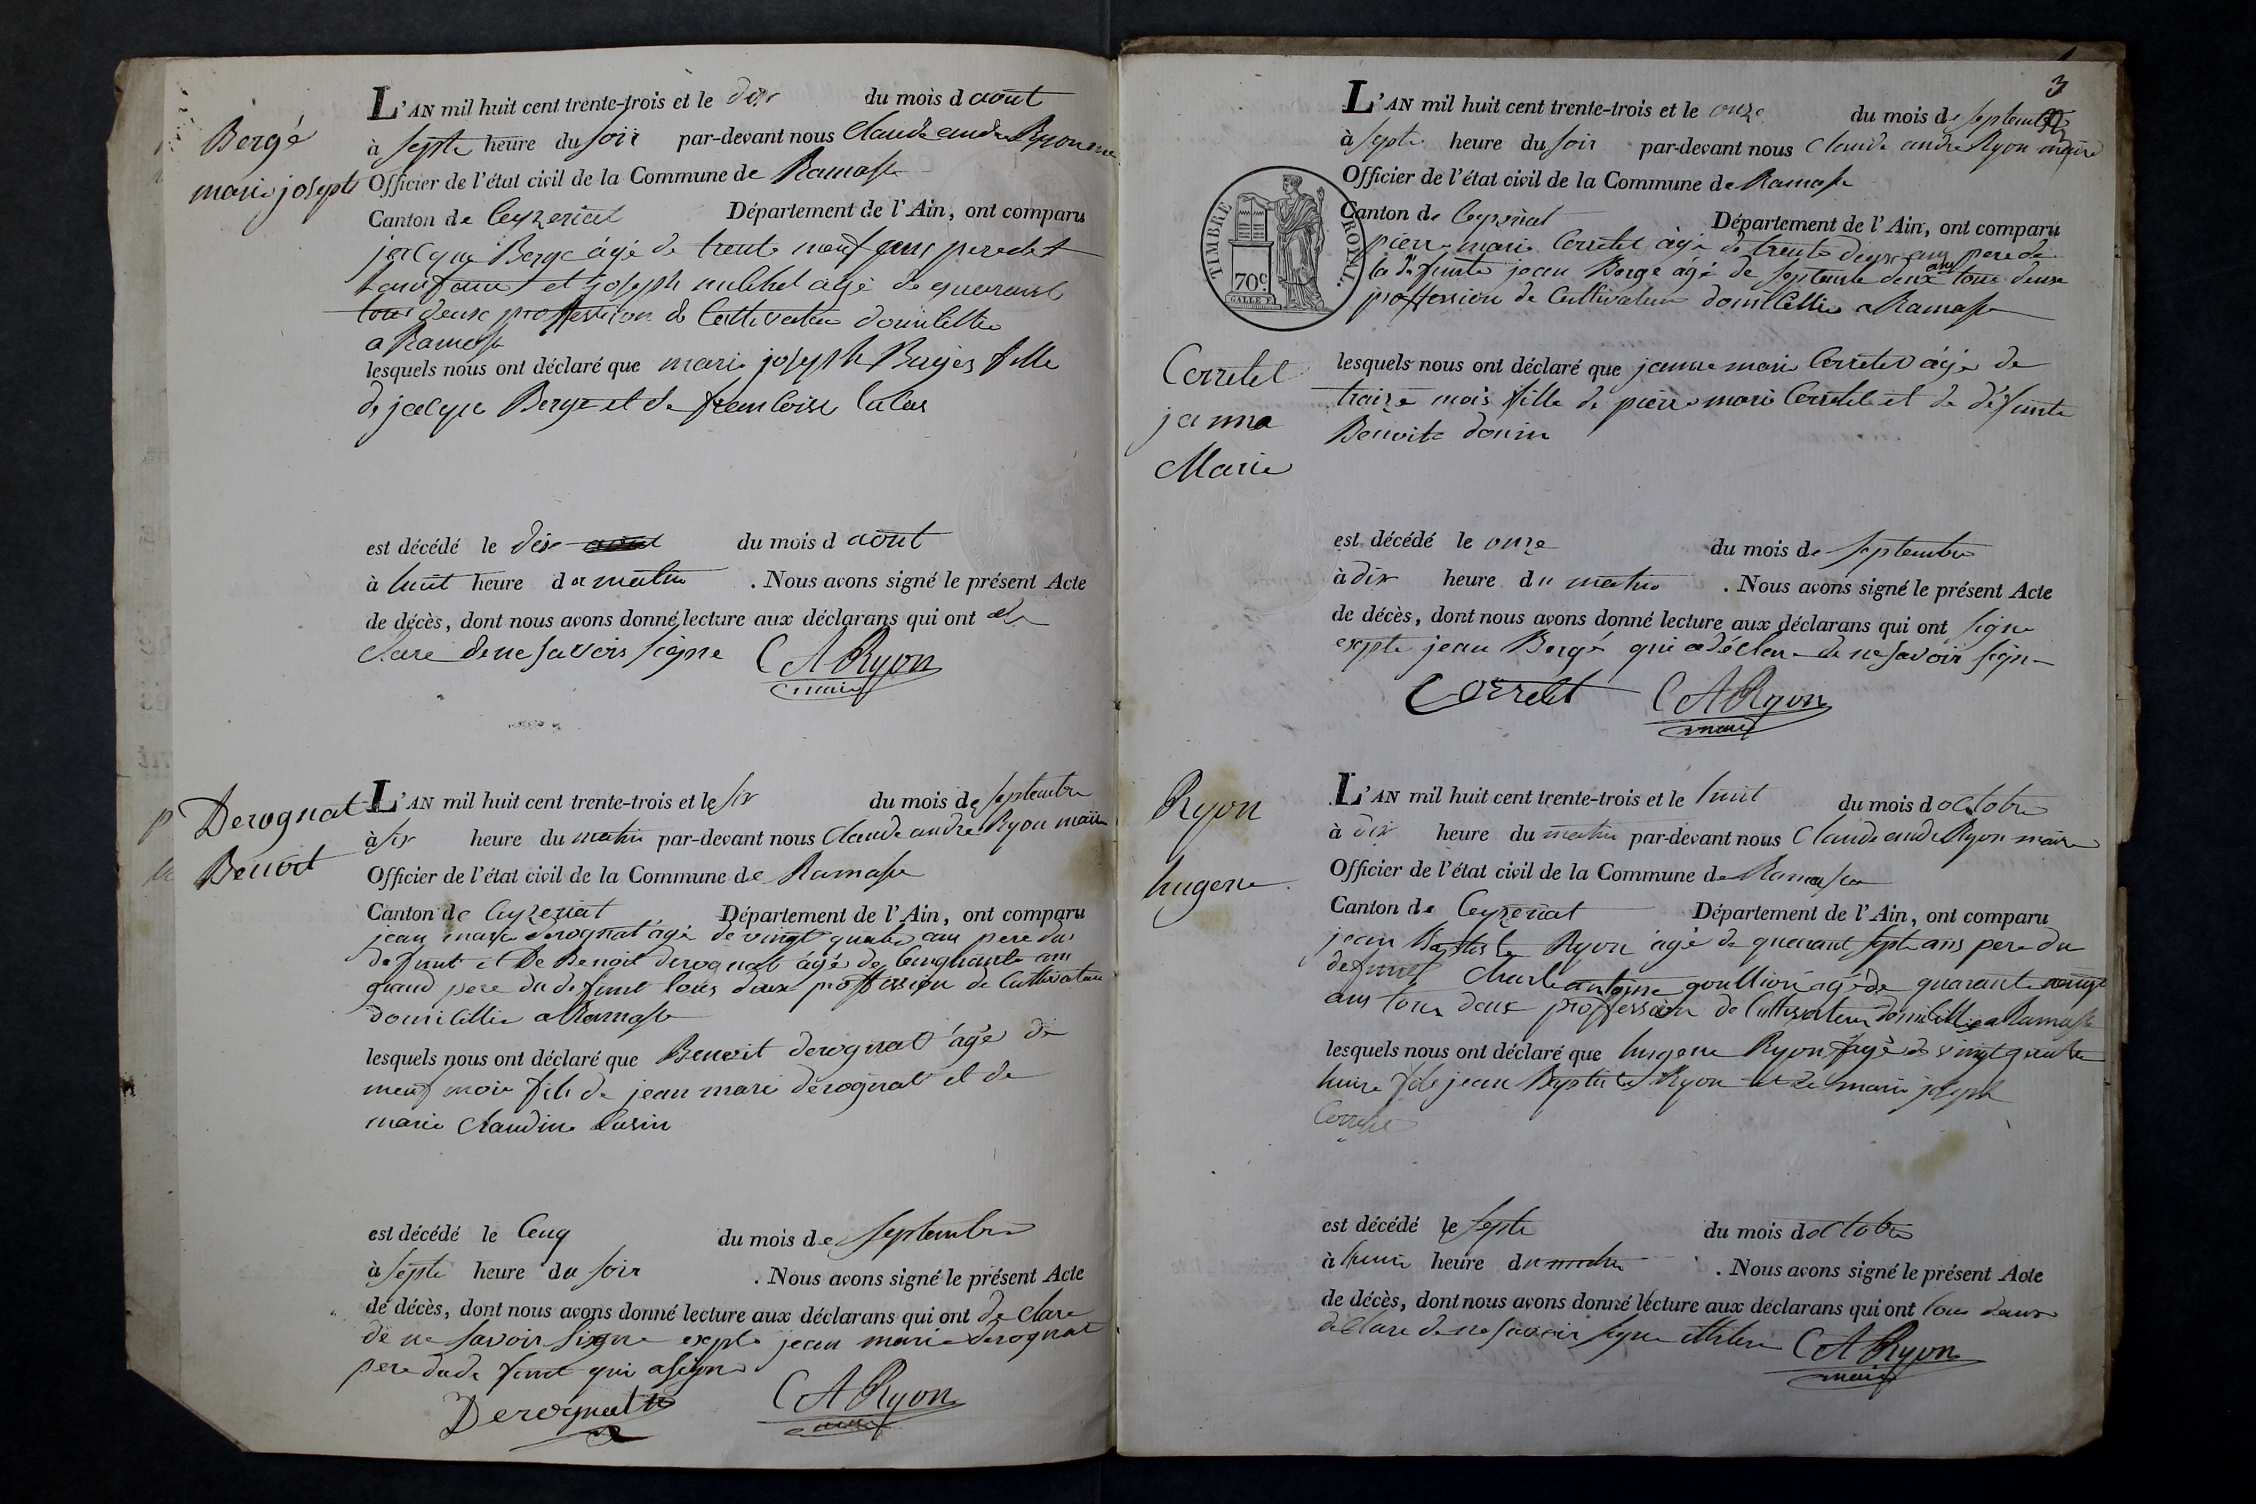 Bergé
marie joseph
L'AN mil huit cent trente-trois et le dix du mois d aout
à septe heure du soir par-devant nous Claude andre Ryon
Officier de l'état civil de la Commune de Ramasse
Canton de Ceyzeriat Département de l'Ain, ont comparu
jacque Berge âgé de trente neuf ans pere de
et joseph michel agé de quarant
tous deux proffession de Cultivateur domicillié
a Ramasse
lesquels nous ont déclaré que marie joseph Berges fille
de jacque Berge et de francoise
est décédé le dix du mois d aout
à huit heure du matin . Nous avons signé le présent Acte
de décès, dont nous avons donné lecture aux déclarans qui ont de
clare de ne savoir signe CA Ryon
maire
Derognat
Benoit
L'AN mil huit cent trente-trois et le six du mois de septembre
à six heure du matin par-devant nous Claude andre Ryon maire
Officier de l'état civil de la Commune de Ramasse
Canton de Ceyzeriat Département de l'Ain, ont comparu
jean marie derognat âgé de vingt quatre ans pere du
defunt et De Benoit derognat âgé de cinquante ans
grand pere du defunt tous deux proffession de Cultivateur
domicillie a Ramasse
lesquels nous ont déclaré que Benoit derognat âgé de
neuf mois fils de jean marie derognat et de
marie Claudine Cusin
est décédé le Cenq du mois de septembre
à septe heure du soir . Nous avons signé le présent Acte
de décès, dont nous avons donné lecture aux déclarans qui ont de clare
de ne savoir signe exepte jean marie derognat
pere du de funt qui a signe
Derognat CA Ryon
maire
3
L'AN mil huit cent trente-trois et le onze du mois de septembre
à septe heure du soir par-devant nous Claude andre Ryon maire
Officier de l'état civil de la Commune de Ramasse
TIMBRE ROYAL.
70c
Canton de Ceyzeriat Département de l'Ain, ont comparu
pierre marie Corretel âgé de trente ans pere de
la défunte jean Berge âgé de septente deux ans tous deux
proffession de Cultivateur domicillie a Ramasse
Corretel
janna
Marie
lesquels nous ont déclaré que jeanne marie Corretel âgé de
traize mois fille de pierre marie Corretel et de défunte
Benoite donin
est décédé le onze du mois de septembre
à dix heure du matin . Nous avons signé le présent Acte
de décès, dont nous avons donné lecture aux déclarans qui ont signe
exepte jean Bergé qui a déclare de ne savoir signe
Corretet CA Ryon
maire
Ryon
hugene
L'AN mil huit cent trente-trois et le huit du mois d octobre
à dix heure du matin par-devant nous Claude andre Ryon maire
Officier de l'état civil de la Commune de Ramasse
Canton de Ceyzeriat Département de l'Ain, ont comparu
jean Baptiste Ryon âgé de quarant septe ans pere du
defunt Charle antoine goullion âgé de quarante
ans tous deux proffession de Cultivateur domicillié a Ramasse
lesquels nous ont déclaré que hugene Ryon âgé de vingt quatre
huire f de jean Baptiste Ryon et de marie joseph
Corretel
est décédé le septe du mois d octobre
à heure du matin . Nous avons signé le présent Acte
de décès, dont nous avons donné lecture aux déclarans qui ont tous deux
declare de ne savoir signe CA Ryon
maire